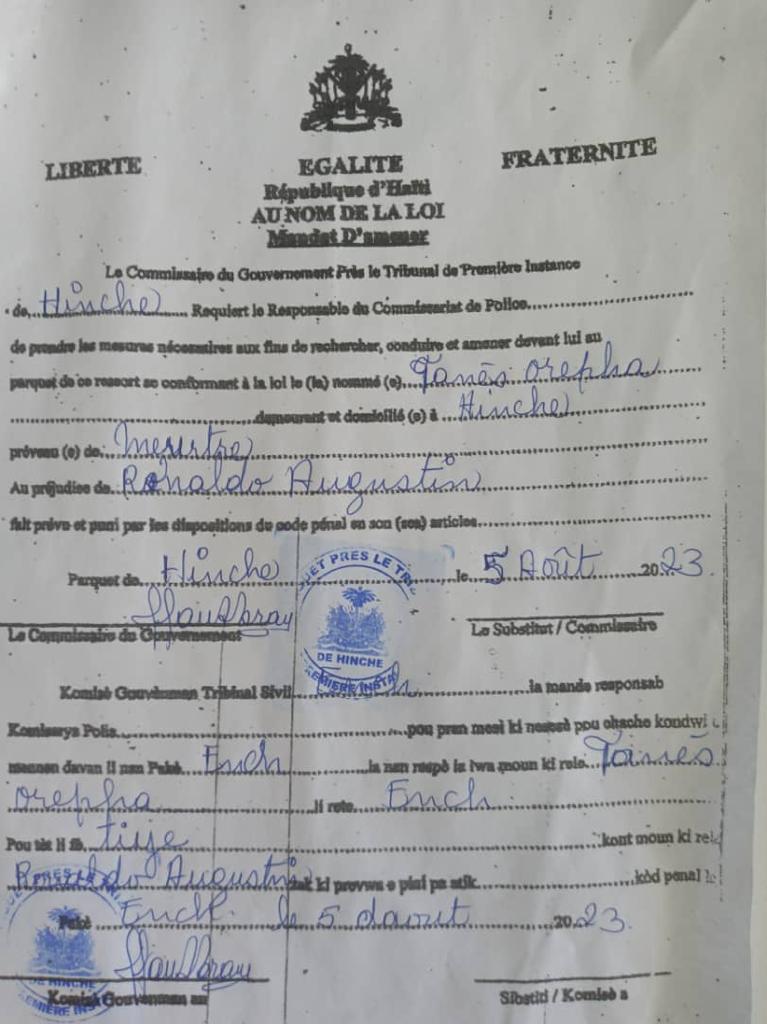 LIBERTE EGALITE FRATERNITE
République d'Haïti
AU NOM DE LA LOI
Mandat D'amener
Le Commissaire du Gouvernement Près le Tribunal de Première Instance
de Hinche Requiert le Responsable du Commissariat de Police
de prendre les mesures nécessaires aux fins de rechercher, conduire et amener devant lui au
parquet de ce ressort se conformant à la loi le (la) nommé (e) Orepha
demeurant et domicilié (e) à Hinche
prévenu (e) de Meurtre
Au préjudice de Ronaldo Augustin
fait prévu et puni par les dispositions du code pénal en son (ses) articles
Parquet de Hinche le 5 Août 2023
Le Commissaire du Gouvernement Le Substitut / Commissaire
DE HINCHE
Komisè Gouvènman Tribinal Sivil la mande responsab
Komisarya Polis pou pran mezi ki nesesè pou chache kondwi
mennen davan li nan Pakè Ench la nan respè la lwa moun ki rele
Orepha li rete Ench
Pou tèt li fè tiye kont moun ki rele
Ronaldo Augustin zak ki prevwa e pini pa atik kòd penal
Pakè Ench le 5 daout 2023
DE HINCHE
Komisè Gouvènman an Sibstiti / Komisè a